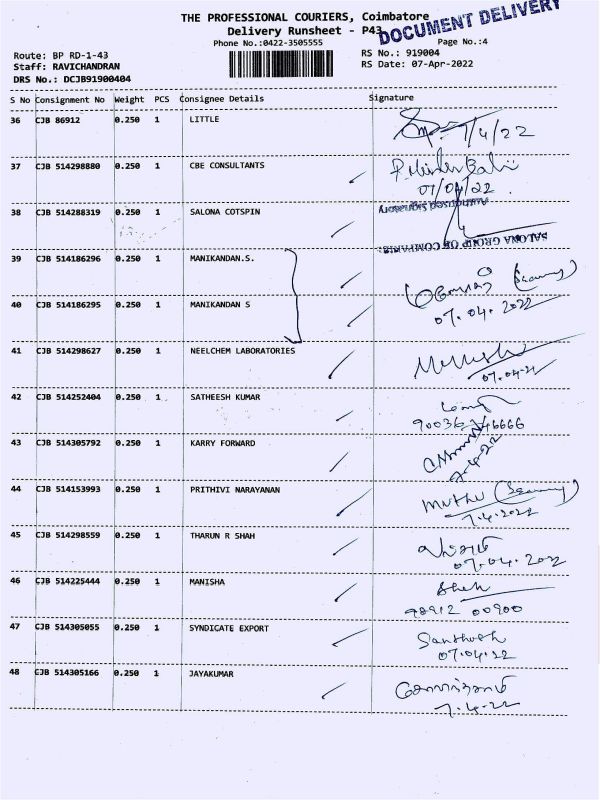 THE PROFESSIONAL COURIERS, Coimbatore
DOCUMENT DELIVERY
Delivery Runsheet - P43
Phone No.:0422-3505555
Page No.:4
Route: BP RD-1-43
RS No.: 919004
Staff: RAVICHANDRAN
RS Date: 07-Apr-2022
DRS No.: DCJB91900404
S No Consignment No Weight PCS Consignee Details Signature
36 CJB 86912 0.250 1 LITTLE 7/4/22
37 CJB 514298880 0.250 1 CBE CONSULTANTS
07/04/22
38 CJB 514288319 0.250 1 SALONA COTSPIN Authorised Signatory
SALONA GROUP OF COMPANIES
39 CJB 514186296 0.250 1 MANIKANDAN.S.
40 CJB 514186295 0.250 1 MANIKANDAN S 07.04.2022
41 CJB 514298627 0.250 1 NEELCHEM LABORATORIES
07.04.21
42 CJB 514252404 0.250 1 SATHEESH KUMAR
43 CJB 514305792 0.250 1 KARRY FORWARD
7-4-22
44 CJB 514153993 0.250 1 PRITHIVI NARAYANAN Muthu
7.4.2022
45 CJB 514298559 0.250 1 THARUN R SHAH
07.04.2022
46 CJB 514225444 0.250 1 MANISHA
98912 00900
47 CJB 514305055 0.250 1 SYNDICATE EXPORT Santhosh
07.04.22
48 CJB 514305166 0.250 1 JAYAKUMAR
7.4.22